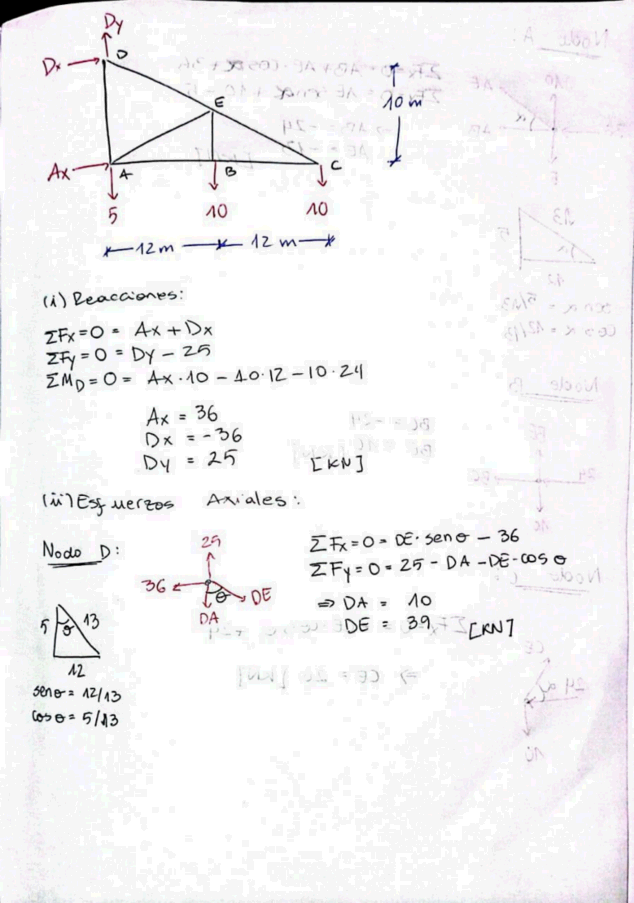 Dy
Dx D
E
10 m
Ax A B C
5 10 10
12 m 12 m
(i) Reacciones:
ΣFx=0 = Ax + Dx
ΣFy=0 = Dy - 25
ΣM_D=0 = Ax·10 - 10·12 - 10·24
Ax = 36
Dx = -36
Dy = 25 [KN]
(ii) Esfuerzos Axiales:
Nodo D:
25
36 θ DE
DA
ΣFx=0 = DE·senθ - 36
ΣFy=0 = 25 - DA - DE·cosθ
⇒ DA = 10
DE = 39 [KN]
5 θ 13
12
senθ = 12/13
cosθ = 5/13